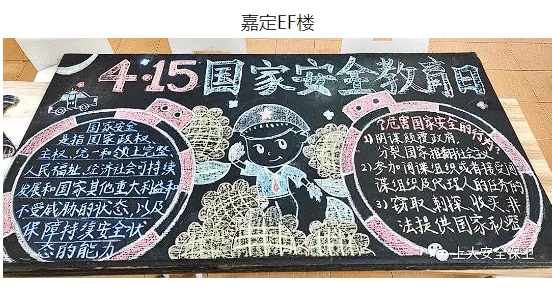 嘉定EF楼
4·15国家安全教育日
国家安全
是指国家政权、
主权、统一和领土完整、
人民福祉、经济社会可持续
发展和国家其他重大利益和
不受威胁的状态，以及
保障持续安全状
态的能力
危害国家安全的行为：
1) 阴谋颠覆政府，
分裂国家推翻社会主义
2) 参加间谍组织或者接受间
谍组织及代理人的任务的
3) 窃取、刺探、收买、非
法提供国家秘密
上大安全保卫